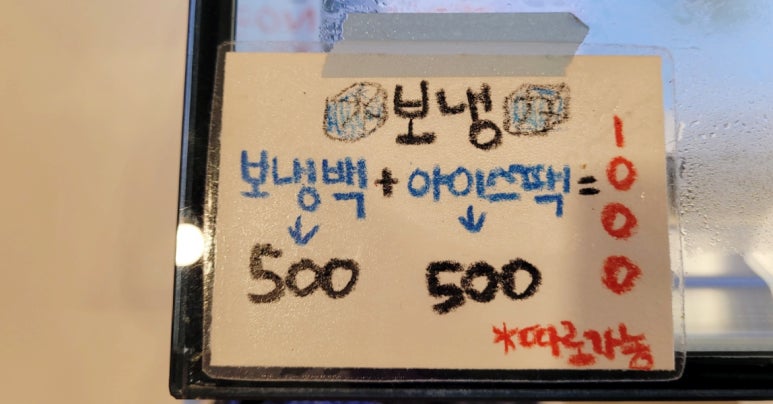 보냉
보냉백 + 아이스팩 = 1000
500 500
*따로가능